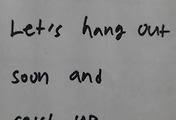 Let's hang out
soon and